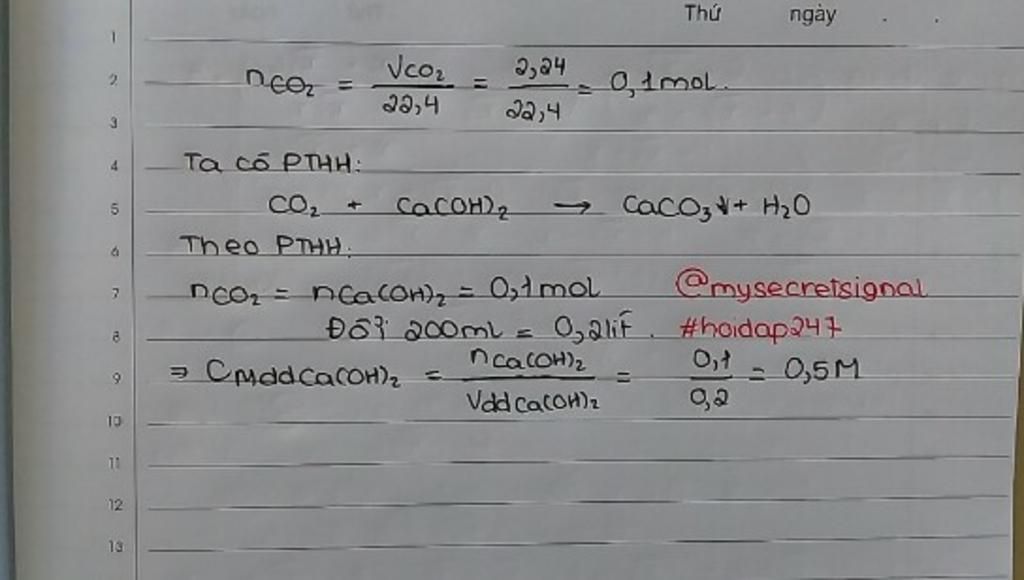 Thứ ngày . .
1
2 nCO₂ = VCO₂/22,4 = 2,24/22,4 = 0,1mol.
3
4 Ta có PTHH:
5 CO₂ + Ca(OH)₂ → CaCO₃↓ + H₂O
6 Theo PTHH:
7 nCO₂ = nCa(OH)₂ = 0,1mol @mysecretsignal
8 Đổi 200ml = 0,2lít. #hoidap247
9 ⇒ CMddCa(OH)₂ = nCa(OH)₂/VddCa(OH)₂ = 0,1/0,2 = 0,5M
10
11
12
13